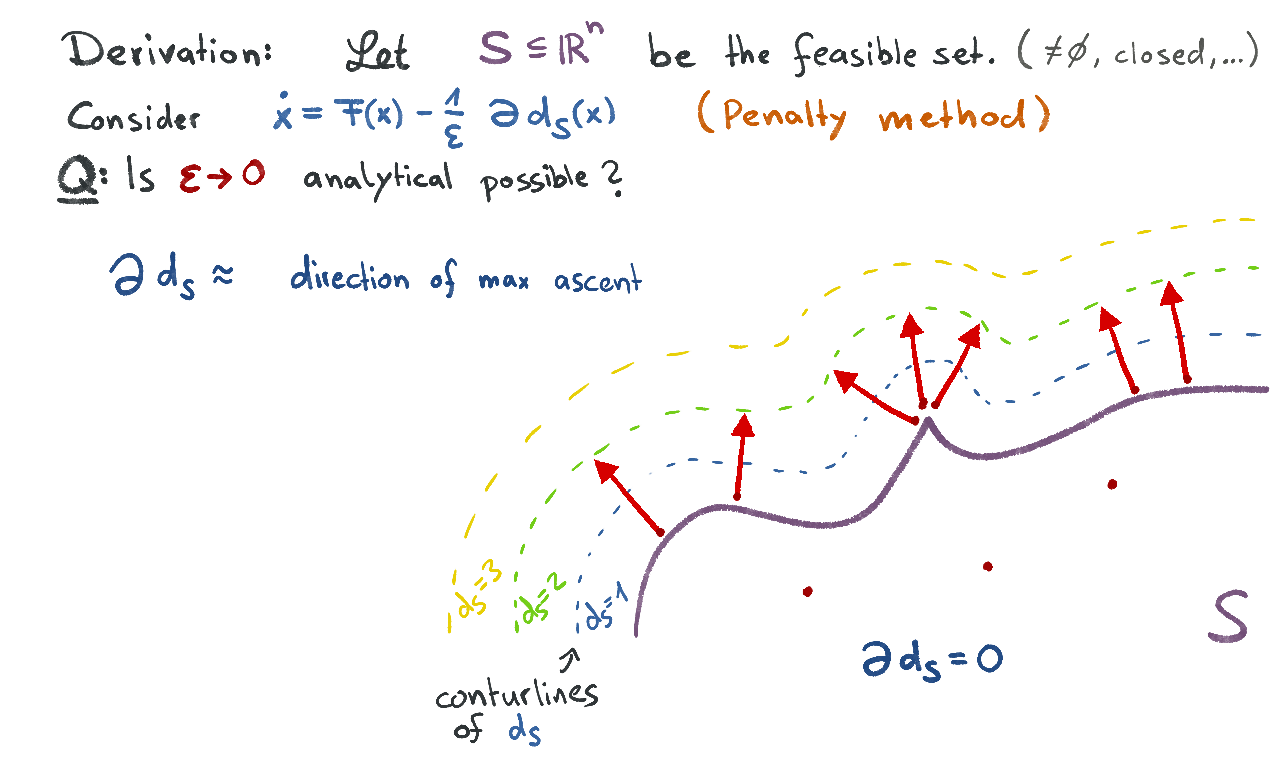 Derivation: Let S ⊆ ℝⁿ be the feasible set. (≠∅, closed,...)
Consider ẋ = F(x) - 1/ε ∂ds(x) (Penalty method)
Q: Is ε→0 analytical possible?
∂ds ≈ direction of max ascent
ds=3
ds=2
ds=1
S
∂ds=0
conturlines
of ds